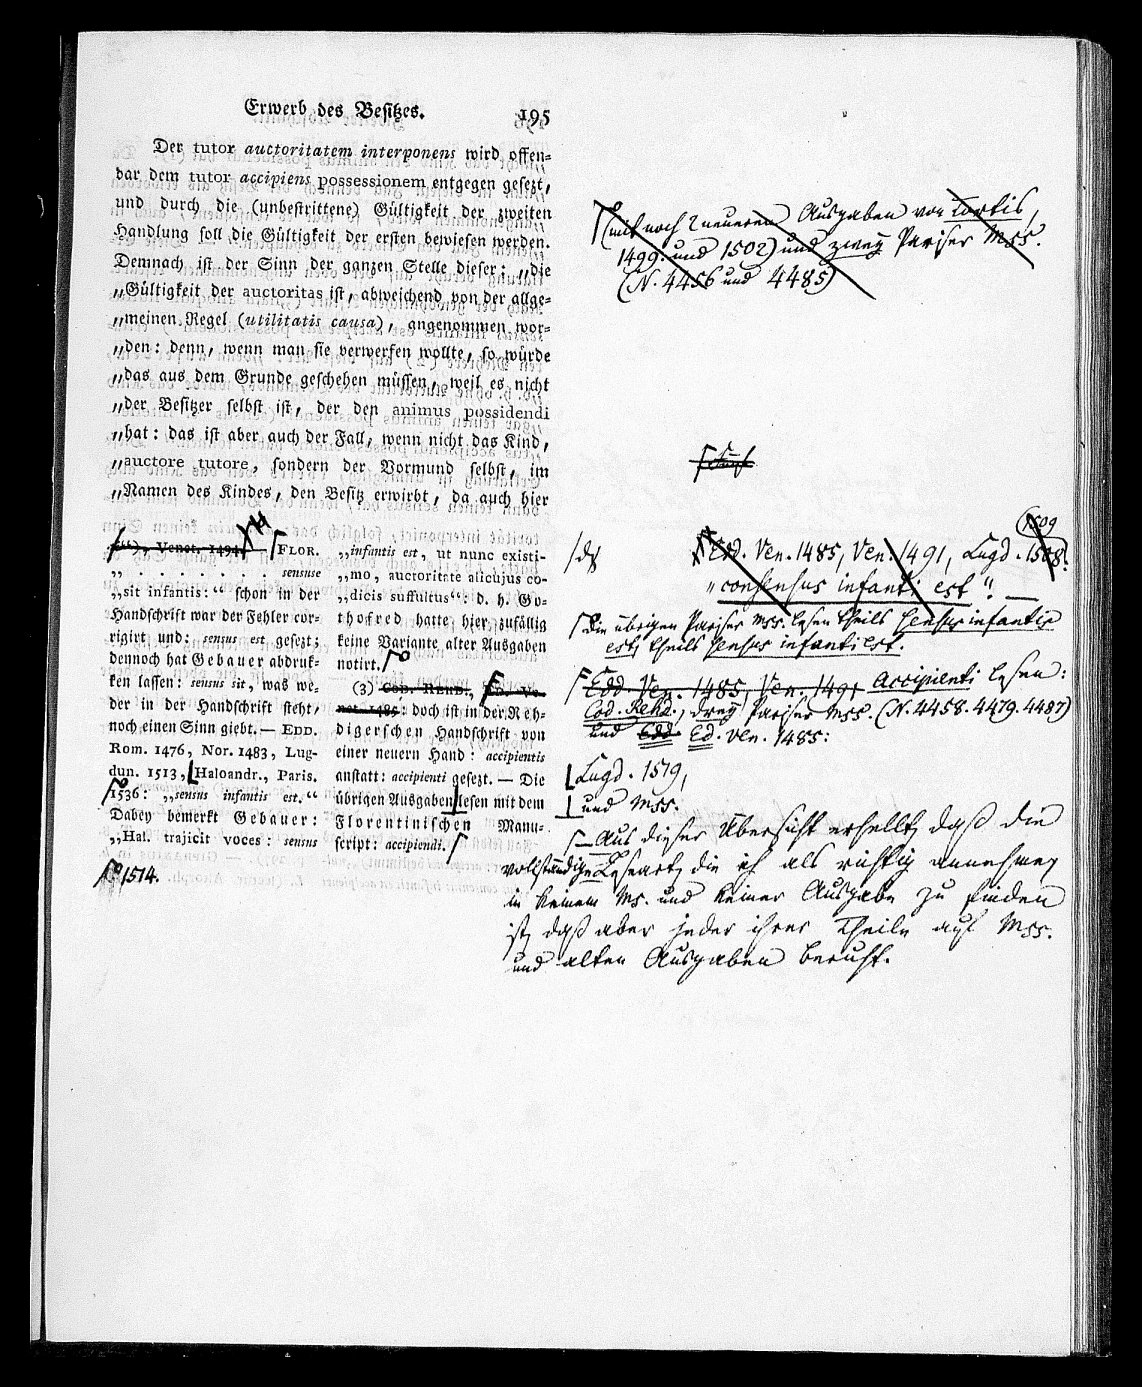 Erwerb des Besitzes. 195
Der tutor auctoritatem interponens wird offen-
bar dem tutor accipiens possessionem entgegen gesezt,
und durch die (unbestrittene) Gültigkeit der zweiten
Handlung soll die Gültigkeit der ersten bewiesen werden.
Demnach ist der Sinn der ganzen Stelle dieser: „die
„Gültigkeit der auctoritas ist, abweichend von der allge-
„meinen Regel (utilitatis causa), angenommen wor-
„den: denn, wenn man sie verwerfen wollte, so würde
„das aus dem Grunde geschehen müssen, weil es nicht
„der Besitzer selbst ist, der den animus possidendi
„hat: das ist aber auch der Fall, wenn nicht das Kind,
„auctore tutore, sondern der Vormund selbst, im
„Namen des Kindes, den Besitz erwirbt, da auch hier
Venet. 1494. — FLOR.
„ . . . . . . . . sensuse
„sit infantis:“ schon in der
Handschrift war der Fehler cor-
rigirt und: sensus est gesezt;
dennoch hat Gebauer abdruk-
ken lassen: sensus sit, was we-
der in der Handschrift steht,
noch einen Sinn giebt. — EDD.
Rom. 1476, Nor. 1483, Lug-
dun. 1513, Haloandr., Paris.
1536: „sensus infantis est.“
Dabey bemerkt Gebauer:
„Hal. trajicit voces: sensus
1514.
„infantis est, ut nunc existi-
„mo, auctoritate alicujus co-
„dicis suffultus“: d. h. Go-
thofred hatte hier zufällig
keine Variante alter Ausgaben
notirt.
(3) COD. REHD., ED. Ve-
net. 1485: doch ist in der Reh-
digerschen Handschrift von
einer neuern Hand: accipientis
anstatt: accipienti gesezt. — Die
übrigen Ausgaben lesen mit dem
Florentinischen Manu-
script: accipiendi.
(mit noch 2 neueren Ausgaben von Tortis,
1499. und 1502) und zwey Pariser Mss.
(N. 4456 und 4485)
1509
Edd. Ven. 1485, Ven. 1491, Lugd. 1508:
„consensus infanti est“. —
die übrigen Pariser Mss. lesen theils sensus infantis
est, theils sensus infanti est.
Edd. Ven. 1485, Ven. 1491 accipienti lesen:
Cod. Rehd., drey Pariser Mss. (N. 4458. 4479. 4487)
und Edd. Ed. Ven. 1485:
Lugd. 1519,
und Mss.
— Aus dieser Übersicht erhellt, daß die
vollständige Leseart, die ich als richtig annehme,
in keinem Ms. und keiner Ausgabe zu finden
ist, daß aber jeder ihrer Theile auf Mss.
und alten Ausgaben beruht.